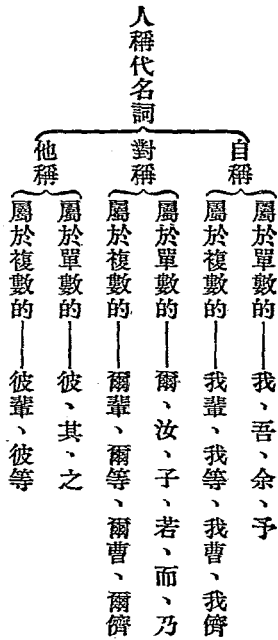 人稱代名詞
自稱
屬於單數的——我、吾、余、予
屬於複數的——我輩、我等、我曹、我儕
對稱
屬於單數的——爾、汝、子、若、而、乃
屬於複數的——爾輩、爾等、爾曹、爾儕
他稱
屬於單數的——彼、其、之
屬於複數的——彼輩、彼等